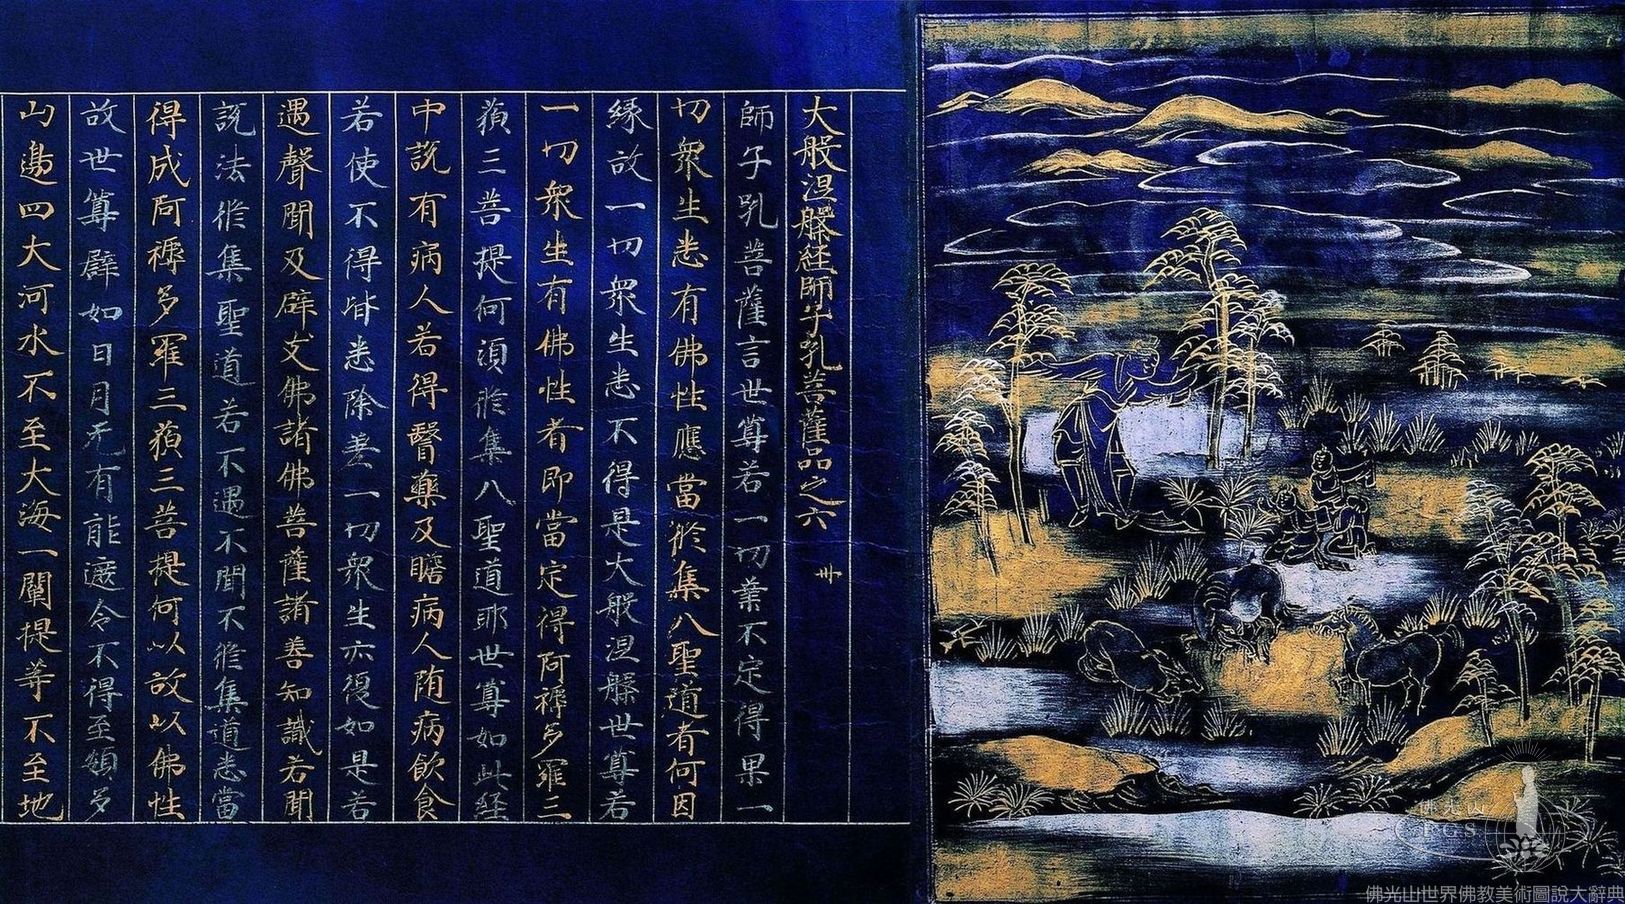 大般涅槃經師子吼菩薩品之六 卅
師子吼菩薩言世尊若一切業不定得果一
切衆生悉有佛性應當修集八聖道者何因
緣故一切衆生悉不得是大般涅槃世尊若
一切衆生有佛性者即當定得阿耨多羅三
藐三菩提何須修集八聖道耶世尊如此經
中說有病人若得醫藥及瞻病人隨病飲食
若使不得皆悉除差一切衆生亦復如是若
遇聲聞及辟支佛諸佛菩薩諸善知識若聞
說法修集聖道若不遇不聞不修集道悉當
得成阿耨多羅三藐三菩提何以故以佛性
故世尊譬如日月无有能遮令不得至頞多
山邊四大河水不至大海一闡提等不至地
佛光山
F.G.S.
佛光山世界佛教美術圖說大辭典